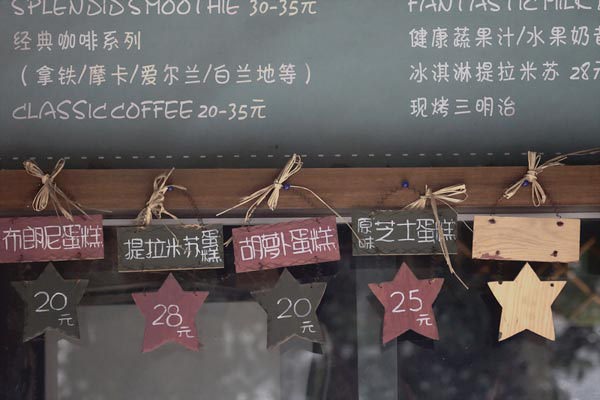 SPLENDID SMOOTHIE 30-35元
经典咖啡系列
(拿铁/摩卡/爱尔兰/白兰地等)
CLASSIC COFFEE 20-35元
FANTASTIC MILK
健康蔬果汁/水果奶昔
冰淇淋提拉米苏 28元
现烤三明治
布朗尼蛋糕
20元
提拉米苏蛋糕
28元
胡萝卜蛋糕
20元
原味芝士蛋糕
25元